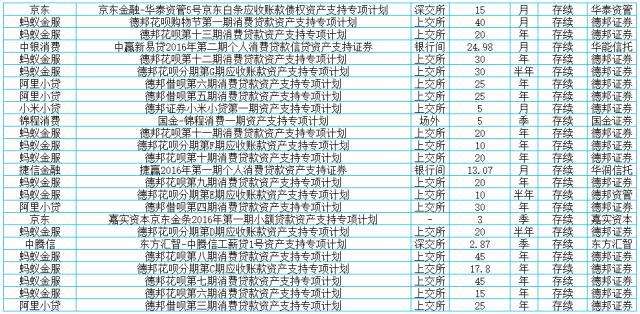 京东 京东金融-华泰资管5号京东白条应收账款债权资产支持专项计划 深交所 15 月 存续 华泰资管
蚂蚁金服 德邦花呗购物节第一期消费贷款资产支持专项计划 上交所 40 月 存续 德邦证券
蚂蚁金服 德邦花呗第十三期消费贷款资产支持专项计划 上交所 20 年 存续 德邦证券
中银消费 中赢新易贷2016年第二期个人消费贷款信贷资产支持证券 银行间 24.98 月 存续 华能信托
蚂蚁金服 德邦花呗第十二期消费贷款资产支持专项计划 上交所 30 年 存续 德邦证券
蚂蚁金服 德邦花呗分期第G期应收账款资产支持专项计划 上交所 30 半年 存续 德邦证券
阿里小贷 德邦借呗第六期消费贷款资产支持专项计划 上交所 25 年 存续 德邦证券
阿里小贷 德邦借呗第五期消费贷款资产支持专项计划 上交所 25 年 存续 德邦证券
小米小贷 德邦证券小米小贷第一期资产支持专项计划 上交所 5 月 存续 德邦证券
锦程消费 国金-锦程消费一期资产支持专项计划 场外 5 季 存续 国金证券
蚂蚁金服 德邦花呗第十一期消费贷款资产支持专项计划 上交所 20 年 存续 德邦证券
蚂蚁金服 德邦花呗分期第F期应收账款资产支持专项计划 上交所 10 年 存续 德邦证券
蚂蚁金服 德邦花呗第十期消费贷款资产支持专项计划 上交所 20 年 存续 德邦证券
捷信金融 捷赢2016年第一期个人消费贷款资产支持证券 银行间 13.07 月 存续 华润信托
蚂蚁金服 德邦花呗第九期消费贷款资产支持专项计划 上交所 20 年 存续 德邦证券
蚂蚁金服 德邦花呗分期第E期应收账款资产支持专项计划 上交所 10 半年 存续 德邦资管
阿里小贷 德邦借呗第四期消费贷款资产支持专项计划 上交所 30 年 存续 德邦证券
京东 嘉实资本京东金条2016年第一期小额贷款资产支持专项计划 - 3 季 存续 嘉实资本
蚂蚁金服 德邦花呗分期第D期应收账款资产支持专项计划 上交所 20 半年 存续 德邦证券
中腾信 东方汇智-中腾信工薪贷1号资产支持专项计划 深交所 2.87 季 存续 东方汇智
蚂蚁金服 德邦花呗第八期消费贷款资产支持专项计划 上交所 45 年 存续 德邦证券
蚂蚁金服 德邦花呗分期第C期应收账款资产支持专项计划 上交所 17.8 年 存续 德邦证券
蚂蚁金服 德邦花呗第七期消费贷款资产支持专项计划 上交所 45 年 存续 德邦证券
蚂蚁金服 德邦花呗第六期消费贷款资产支持专项计划 上交所 15 年 存续 德邦证券
阿里小贷 德邦借呗第三期消费贷款资产支持专项计划 上交所 25 年 存续 德邦证券